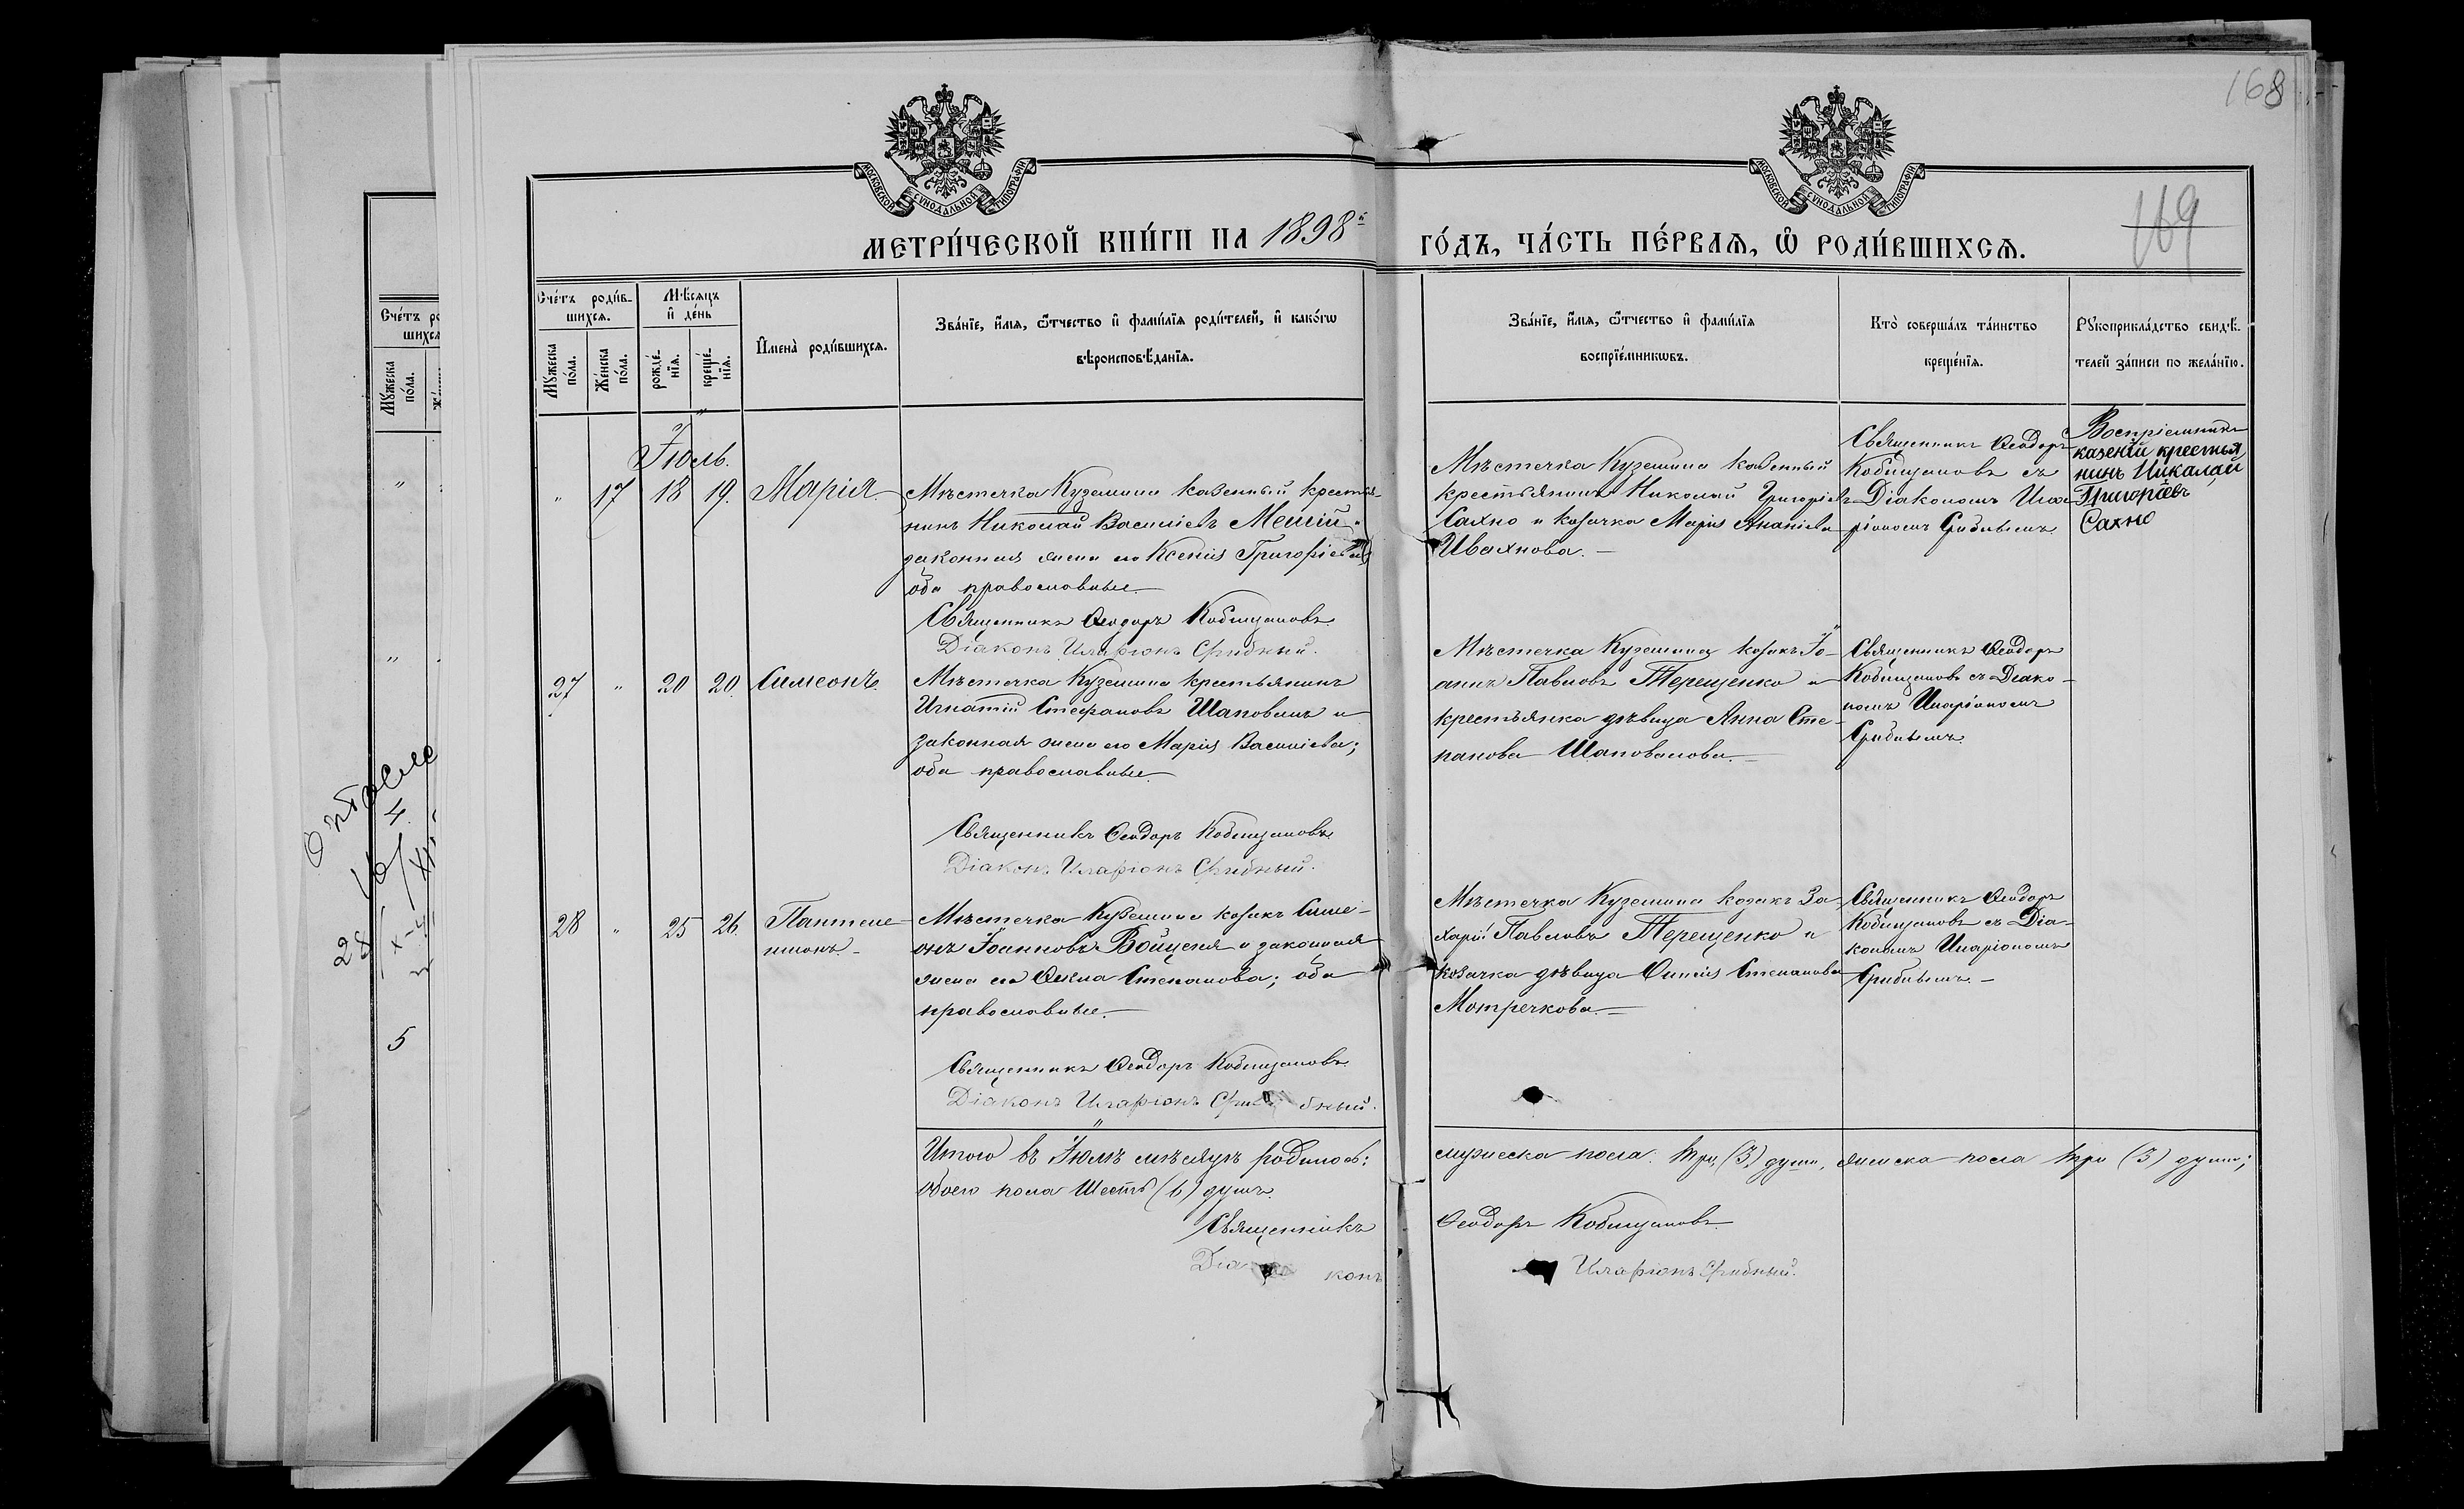 168
169
МОСКОВСКОЙ СУНОДАЛЬНОЙ ТИПОГРАФІИ
МОСКОВСКОЙ СУНОДАЛЬНОЙ ТИПОГРАФІИ
МЕТРИ́ЧЕСКОЙ КНИ́ГИ НА 1898й
ГО́ДЪ, ЧА́СТЬ ПЕ́РВАѦ, Ѡ҆ РОДИ́ВШИХСѦ.
Сче́тъ роди́в-
шихсѧ.
Мꙋ́жеска
по́ла.
Же́нска
по́ла.
Мѣ́сѧцъ
и҆ де́нь
рожде́-
нїѧ.
креще́-
нїѧ.
И҆мена̀ роди́вшихсѧ.
Зва́нїе, и҆́мѧ, ѻ҆́тчество и҆ фами́лїѧ роди́телей, и҆ како́гѡ
вѣроисповѣ́данїѧ.
Зва́нїе, и҆́мѧ, ѻ҆́тчество и҆ фами́лїѧ
воспрїе́мникѡвъ.
Кто̀ соверша́лъ та́инство
креще́нїѧ.
Рꙋкоприкла́дство свидѣ́-
телей за́писи по жела́нїю.
Сче́тъ ро
шихсѧ
Мꙋ́жеска
по́ла.
28
5
Іюль.
" 17 18 19. Марія
Мѣстечка Куземина казенный крестья-
нинъ Николай Василіевъ Мешій и
законная жена его Ксенія Григоріева;
оба православные
Священникъ Ѳеодоръ Кобищановъ
Діаконъ Иларіонъ Срибный.
Мѣстечка Куземина казенный
крестьянинъ Николай Григоріевъ
Сахно и козачка Марія Ананіева
Ивахнова.
Священникъ Ѳеодоръ
Кобищановъ съ
Діакономъ Ила-
ріономъ Срибнымъ
Воспріемникъ
казений крестья
нинъ Николай
Григоріевъ
Сахно
27 " 20 20. Симеонъ.
Мѣстечка Куземина крестьянинъ
Игнатій Стефановъ Шаповалъ и
законная жена его Марія Василіева;
оба православные
Священникъ Ѳеодоръ Кобищановъ
Діаконъ Иларіонъ Срибный.
Мѣстечка Куземина козакъ Іо-
аннъ Павловъ Терещенко и
крестьянка дѣвица Анна Сте-
панова Шаповалова.
Священникъ Ѳеодоръ
Кобищановъ съ Діако-
номъ Иларіономъ
Срибнымъ.
28 " 25 26. Пантеле-
имонъ.
Мѣстечка Куземина козакъ Симе-
онъ Іоанновъ Войценя и законная
жена его Ѳекла Степанова; оба
православные.
Священникъ Ѳеодоръ Кобищановъ.
Діаконъ Иларіонъ Срибный.
Мѣстечка Куземина козакъ За-
харій Павловъ Терещенко и
козачка дѣвица Степанова
Мотречкова.
Священникъ Ѳеодоръ
Кобищановъ съ Діа-
кономъ Иларіономъ
Срибнымъ.
Итого въ Іюлѣ мѣсяцѣ родилось: мужеска пола три (3) души, женска пола три (3) души;
обоего пола шесть (6) душъ.
Священникъ Ѳеодоръ Кобищановъ
Діаконъ Иларіонъ Срибный.